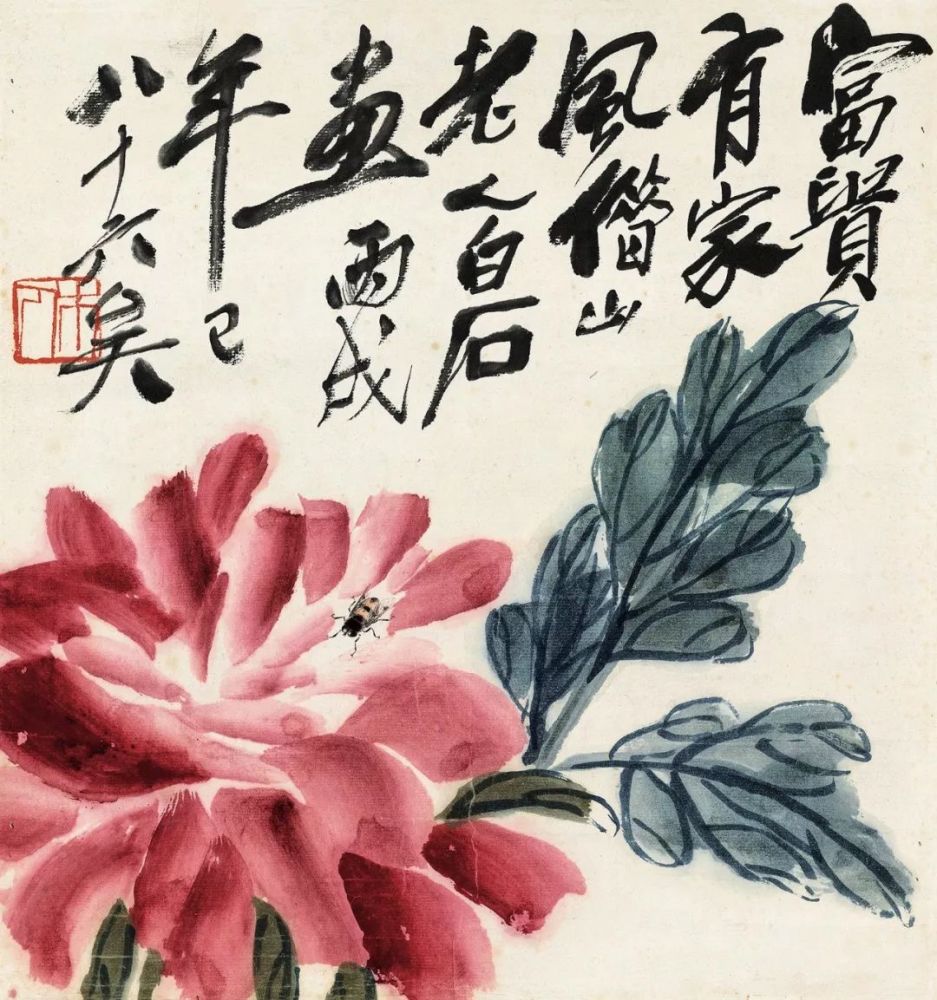 富貴
有家
風借山
老人白石
畫丙戌
年已
八十六矣
木人